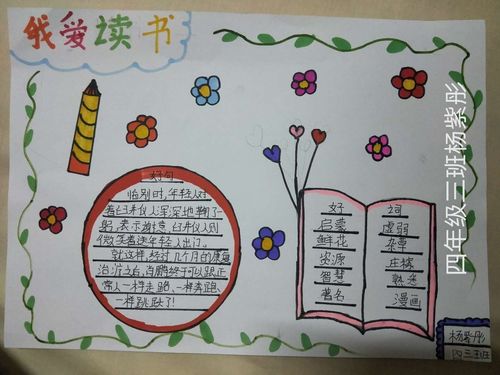 我爱读书
好句
临别时,年轻人对
着白求恩深深地鞠了一
躬,表示敬意,白求恩则
微笑着送年轻人出门。
就这样,经过几个月的康复
治疗之后,肖鹏终于可以跟正
常人一样走路,一样奔跑
一样跳跃了!
好 词
启蒙 虚弱
鲜花 杂草
资源 庄稼
智慧 熟悉
著名 漫画
四年级三班杨紫彤
杨紫彤
四三班